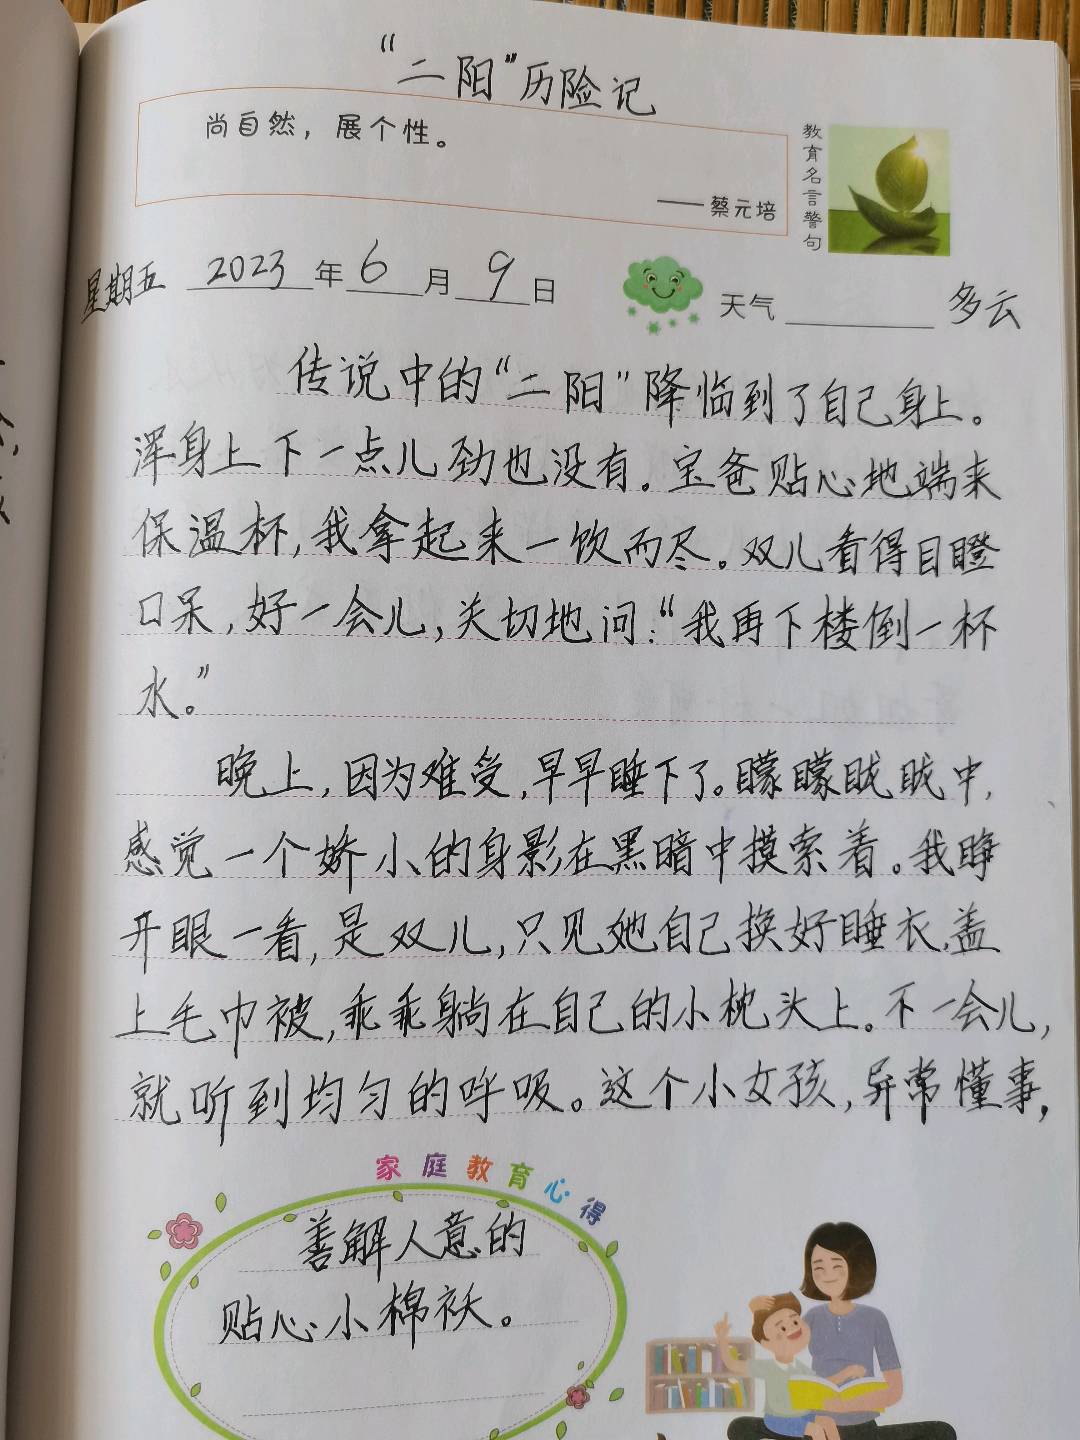 “二阳”历险记
尚自然，展个性。
——蔡元培
教育名言警句
星期五 2023年6月9日 天气 多云
传说中的“二阳”降临到了自己身上。
浑身上下一点儿劲也没有。宝爸贴心地端来
保温杯，我拿起来一饮而尽。双儿看得目瞪
口呆，好一会儿，关切地问：“我再下楼倒一杯
水。”
晚上，因为难受，早早睡下了。朦朦胧胧中，
感觉一个娇小的身影在黑暗中摸索着。我睁
开眼一看，是双儿，只见她自己换好睡衣，盖
上毛巾被，乖乖躺在自己的小枕头上。不一会儿，
就听到均匀的呼吸。这个小女孩，异常懂事，
家庭教育心得
善解人意的
贴心小棉袄。